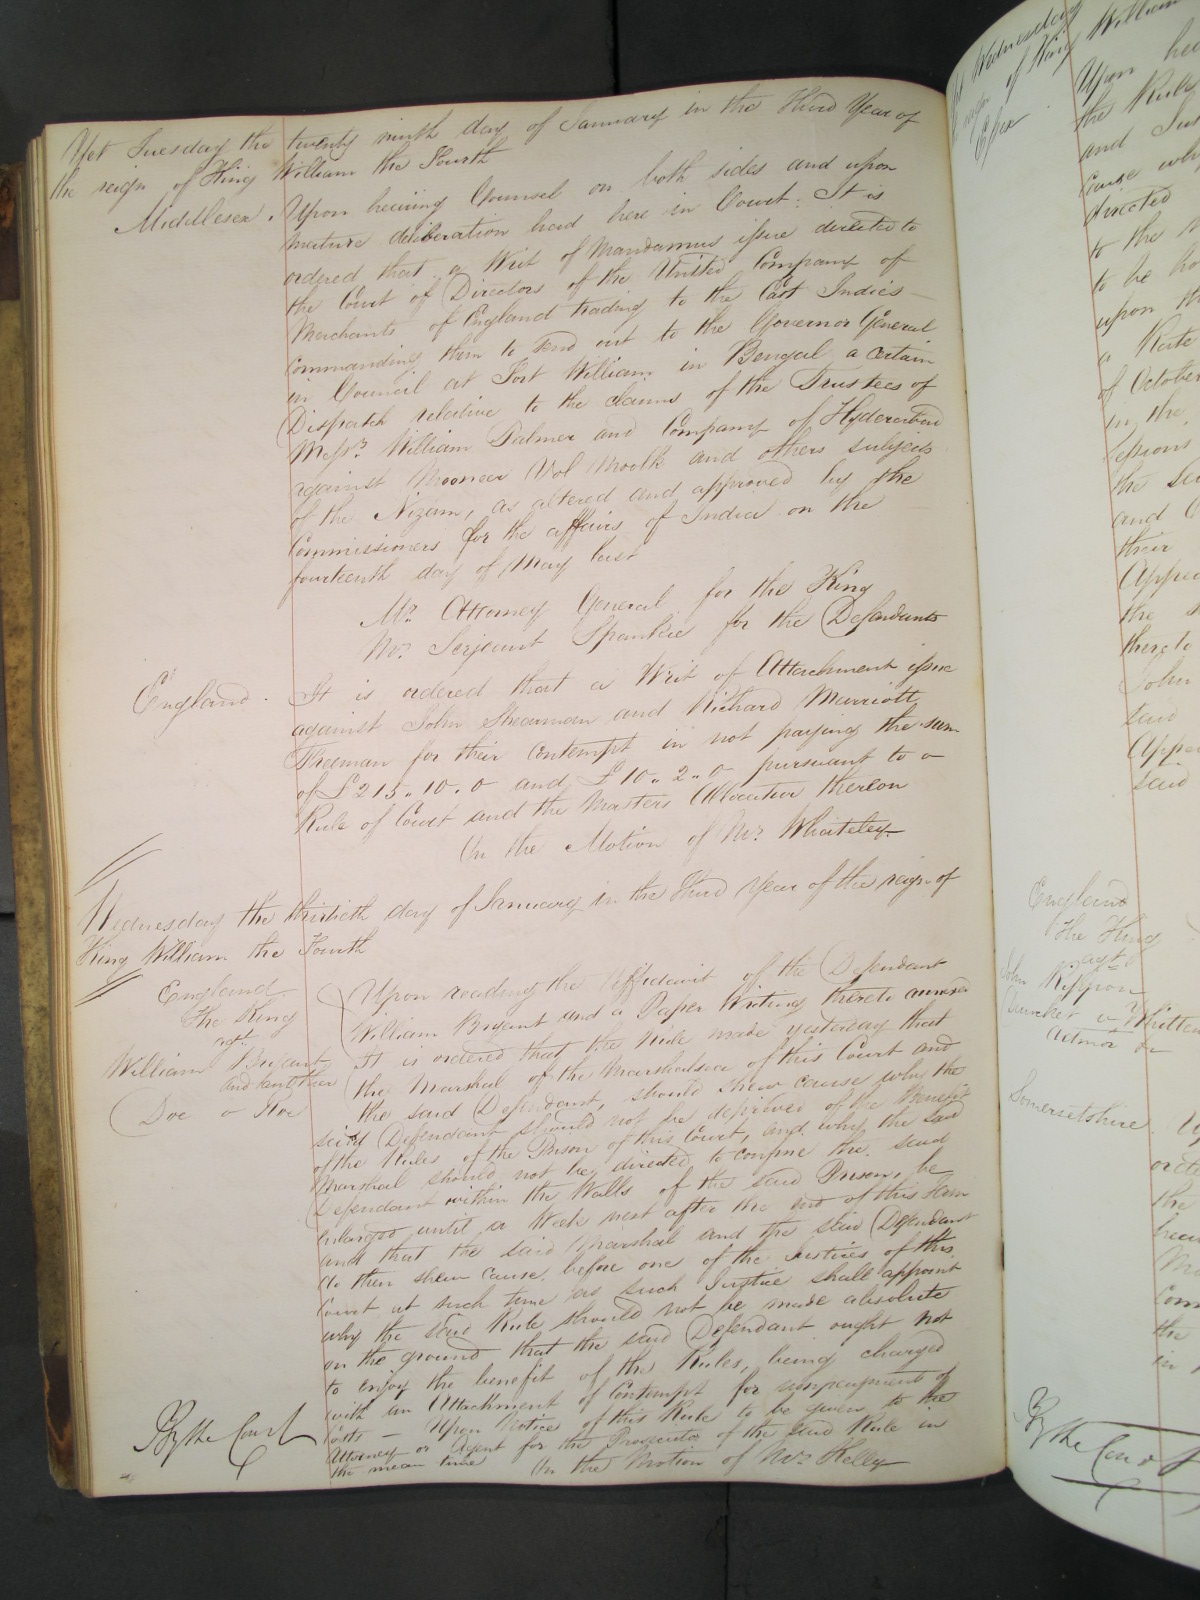 Yet Tuesday the twenty ninth day of January in the Third Year of
the reign of King William the Fourth
Middlesex.
Upon hearing Counsel on both sides and upon
mature deliberation had here in Court: It is
ordered that a Writ of Mandamus issue directed to
the Court of Directors of the United Company of
Merchants of England trading to the East Indies
Commanding them to send out to the Governor General
in Council at Fort William in Bengal a certain
Dispatch relative to the claims of the Trustees of
Messrs. William Palmer and Company of Hyderabad
against Mooneer Ool Moolk and others subjects
of the Nizam, as altered and approved by the
Commissioners for the affairs of India on the
fourteenth day of May last
Mr. Attorney General for the King
Mr. Serjeant Spankie for the Defendants
England.
It is ordered that a Writ of Attachment issue
against John Shearman and Richard Marriott
Freeman for their contempt in not paying the sum
of £215.10.0 and £10.2.0 pursuant to a
Rule of Court and the Masters Allocatur thereon
On the Motion of Mr. Whateley
Wednesday the thirtieth day of January in the Third Year of the reign of
King William the Fourth
England
The King
agt.
William Bryant
and another
Doe & Roe
Upon reading the Affidavit of the Defendant
William Bryant and a Paper Writing thereto annexed
It is ordered that the Rule made yesterday that
the Marshal of the Marshalsea of this Court and
the said Defendant, should shew cause why the
said Defendant should not be deprived of the Benefit
of the Rules of the Prison of this Court, and why the said
Marshal should not be directed to confine the said
Defendant within the Walls of the said Prison, be
enlarged until a Week next after the end of this Term
and that the said Marshal and the said Defendant
do then shew cause before one of the Justices of this
Court at such time as such Justice shall appoint
why the said Rule should not be made absolute
on the ground that the said Defendant ought not
to enjoy the benefit of the Rules, being charged
with an Attachment of Contempt for nonpayment of
Costs – Upon Notice of this Rule to be given to the
Attorney or Agent for the Prosecutor of the said Rule in
the mean time
On the Motion of Mr. Kelly
By the Court
Wednesday
of King William
Essex
Upon
the Rule
and
Cause why
directed
to the
to be
upon
a Rate
of October
in the
Sessions
the
and
their
Appeal
the
thereto
John
said
said
England
The King
agt.
John Rippon
Somersetshire
the
Com
the
in
By the Court